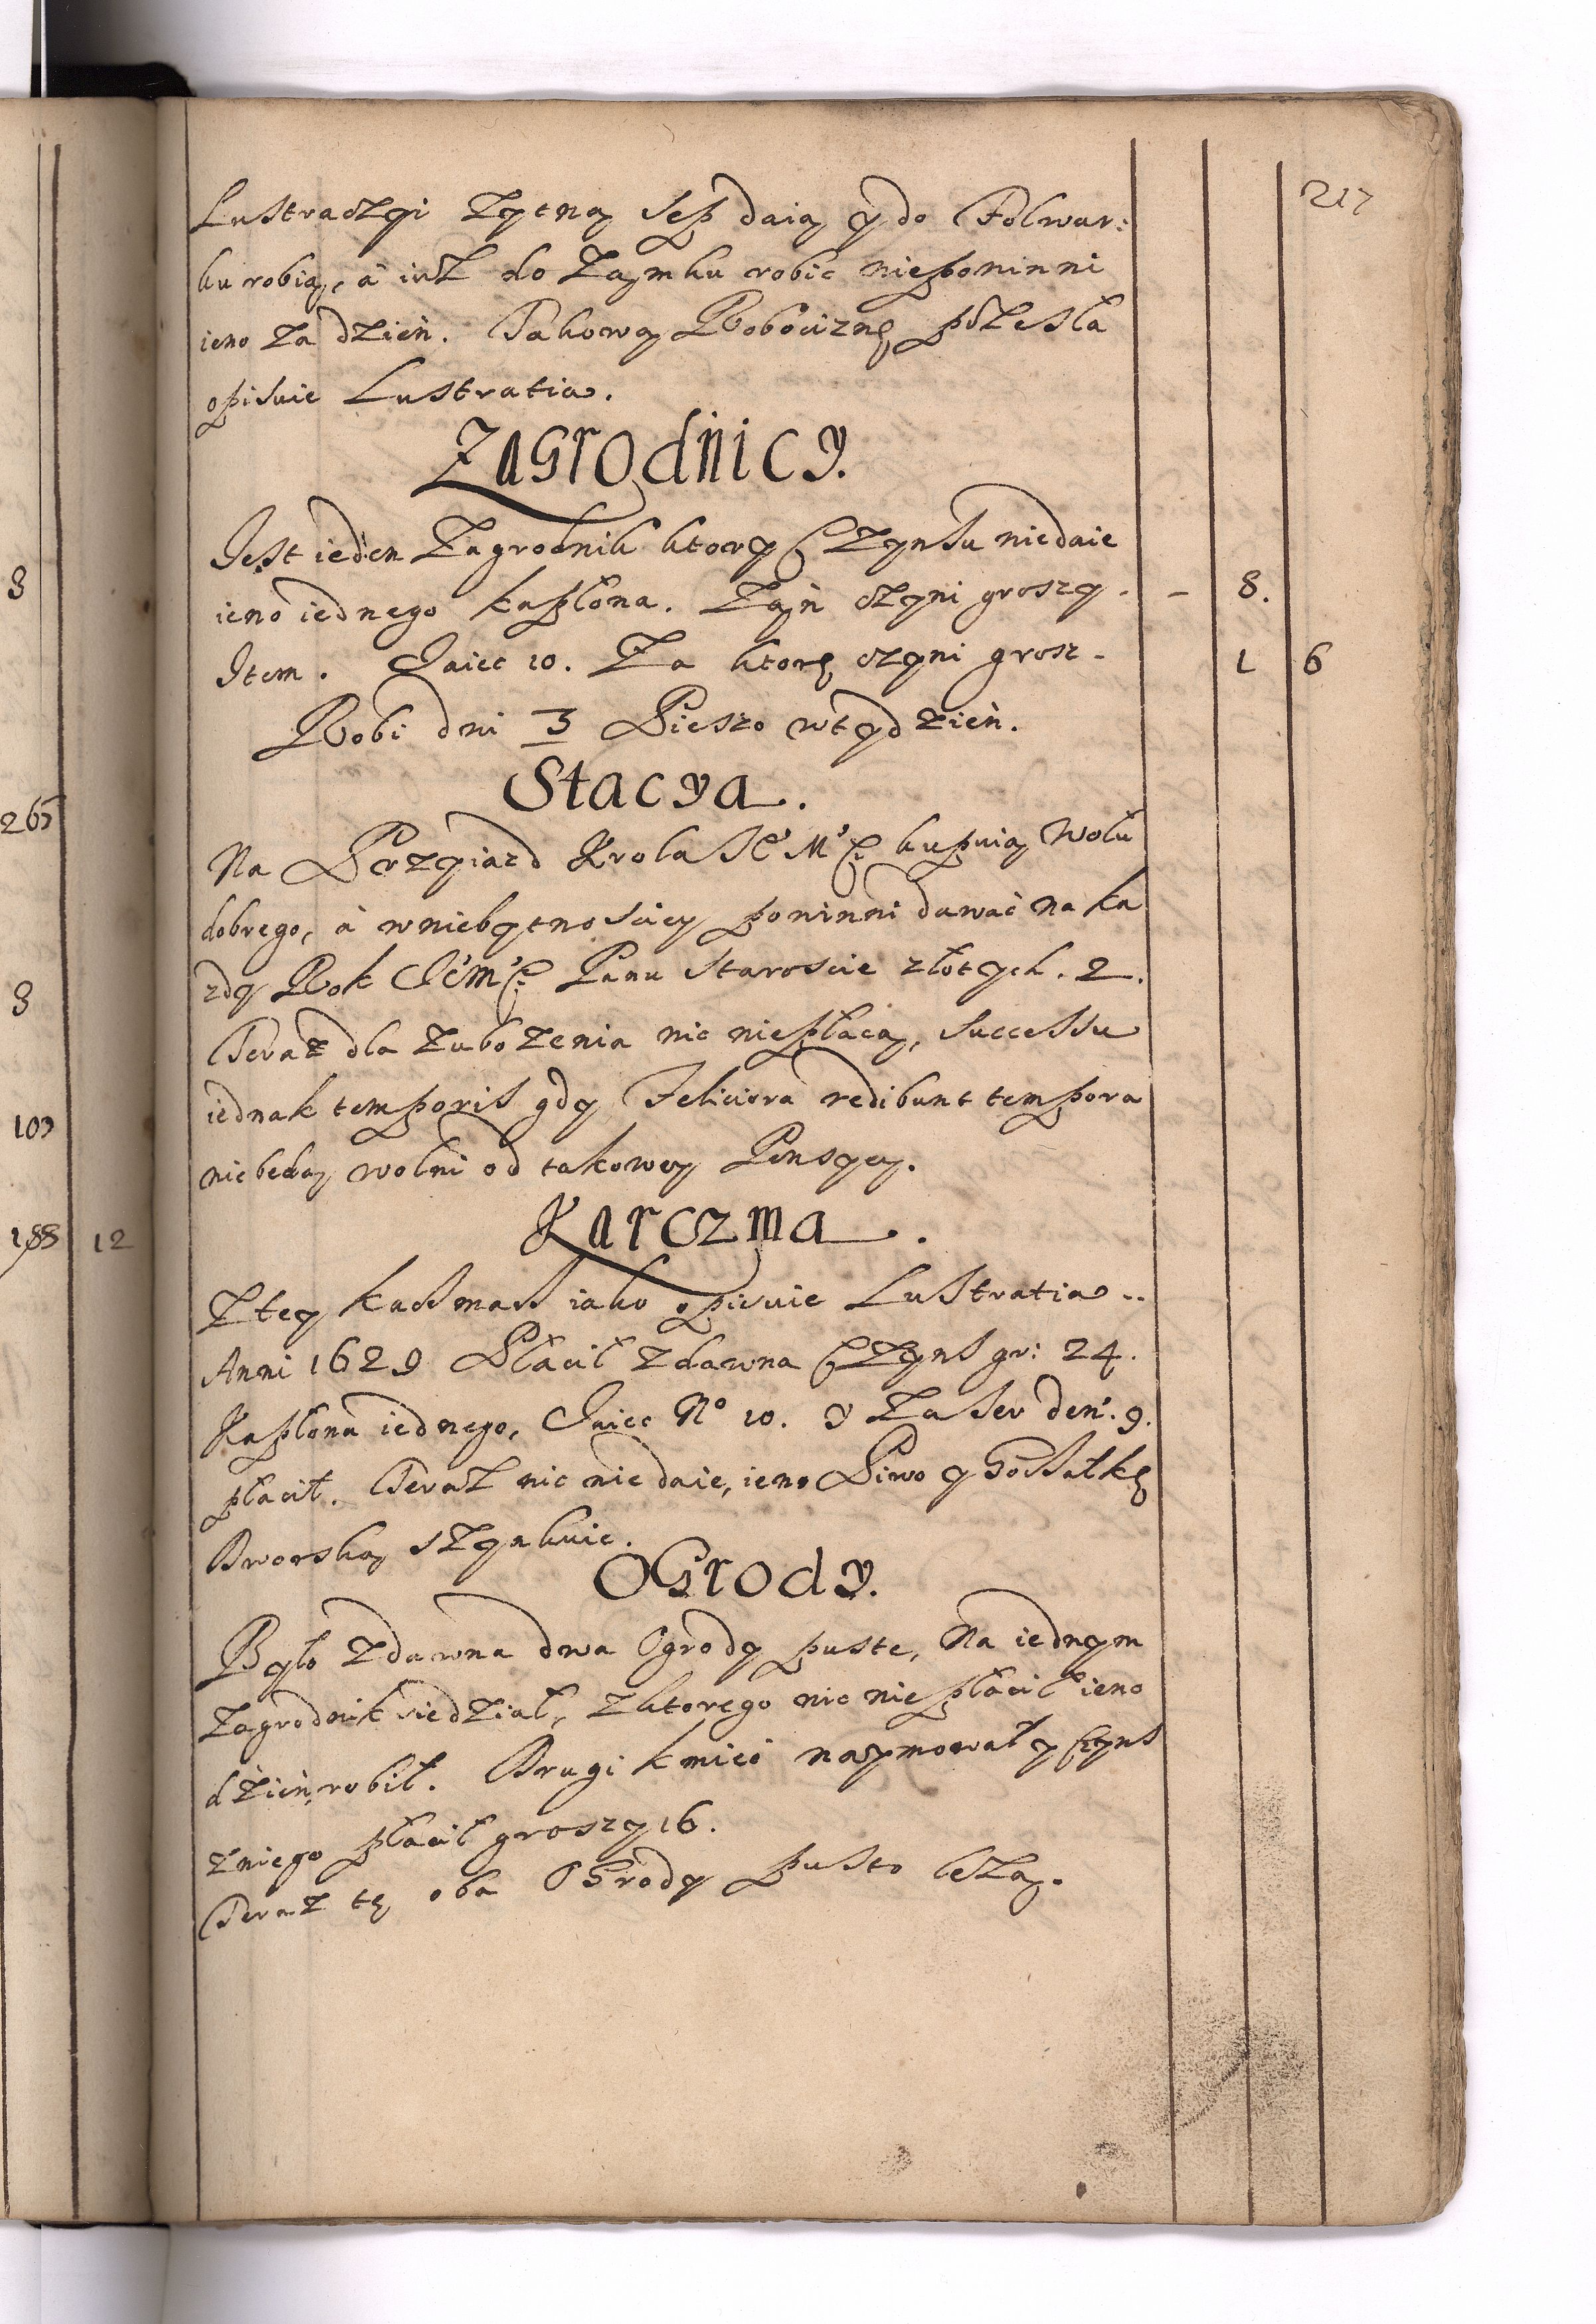 217
Lustraczyi Zytną sep daią y do Folwar:
ku robią, á iuż do Zamku robic niepowinni
ieno Za dzień. Takową Robociznę przeszła
opisuie Lustratia.
Zagrodnicy.
Jest ieden Zagrodnik ktory Czynszu niedaie
ieno iednego kapłona. Zań czyni groszy - - 8.
Item. Jaiec 10. Za ktorę czyni grosz - 1 6
Robi dni 3 Pieszo wtydzień.
Stacya.
Na Przyiazd Krola Je° M°Ci kupuią Wołu
dobrego, á wniebytnosciey powinni dawać na ka
zdy Rok JeM°Ci Panu Staroscie złotych. 2.
Teraz dla Zubozenia nic niepłacą, successu
iednak temporis gdy Feliciora redibunt tempora
nie będą wolni od takowey Pensyey.
Karczma.
Z tey iako opisuie Lustratia..
Anni 1629 Płacił zdawna Czynsz gr: 24.
Kapłona iednego, Jaiec N° 10. y Za Ser den. 9.
płacił. Teraz nic nie daie, ieno Piwo y Gorzałkę
Dworską szynkuie.
Ogrody.
Było zdawna dwa Ogrody puste, Na iednym
Zagrodnik siedział, zktorego nic niepłacił ieno
dzień robił. Drugi kmieć naymował y Czynsz
zniego płacił groszy 16.
Teraz tę oba Ogrody pusto lezą.
3
265
3
103
188 12